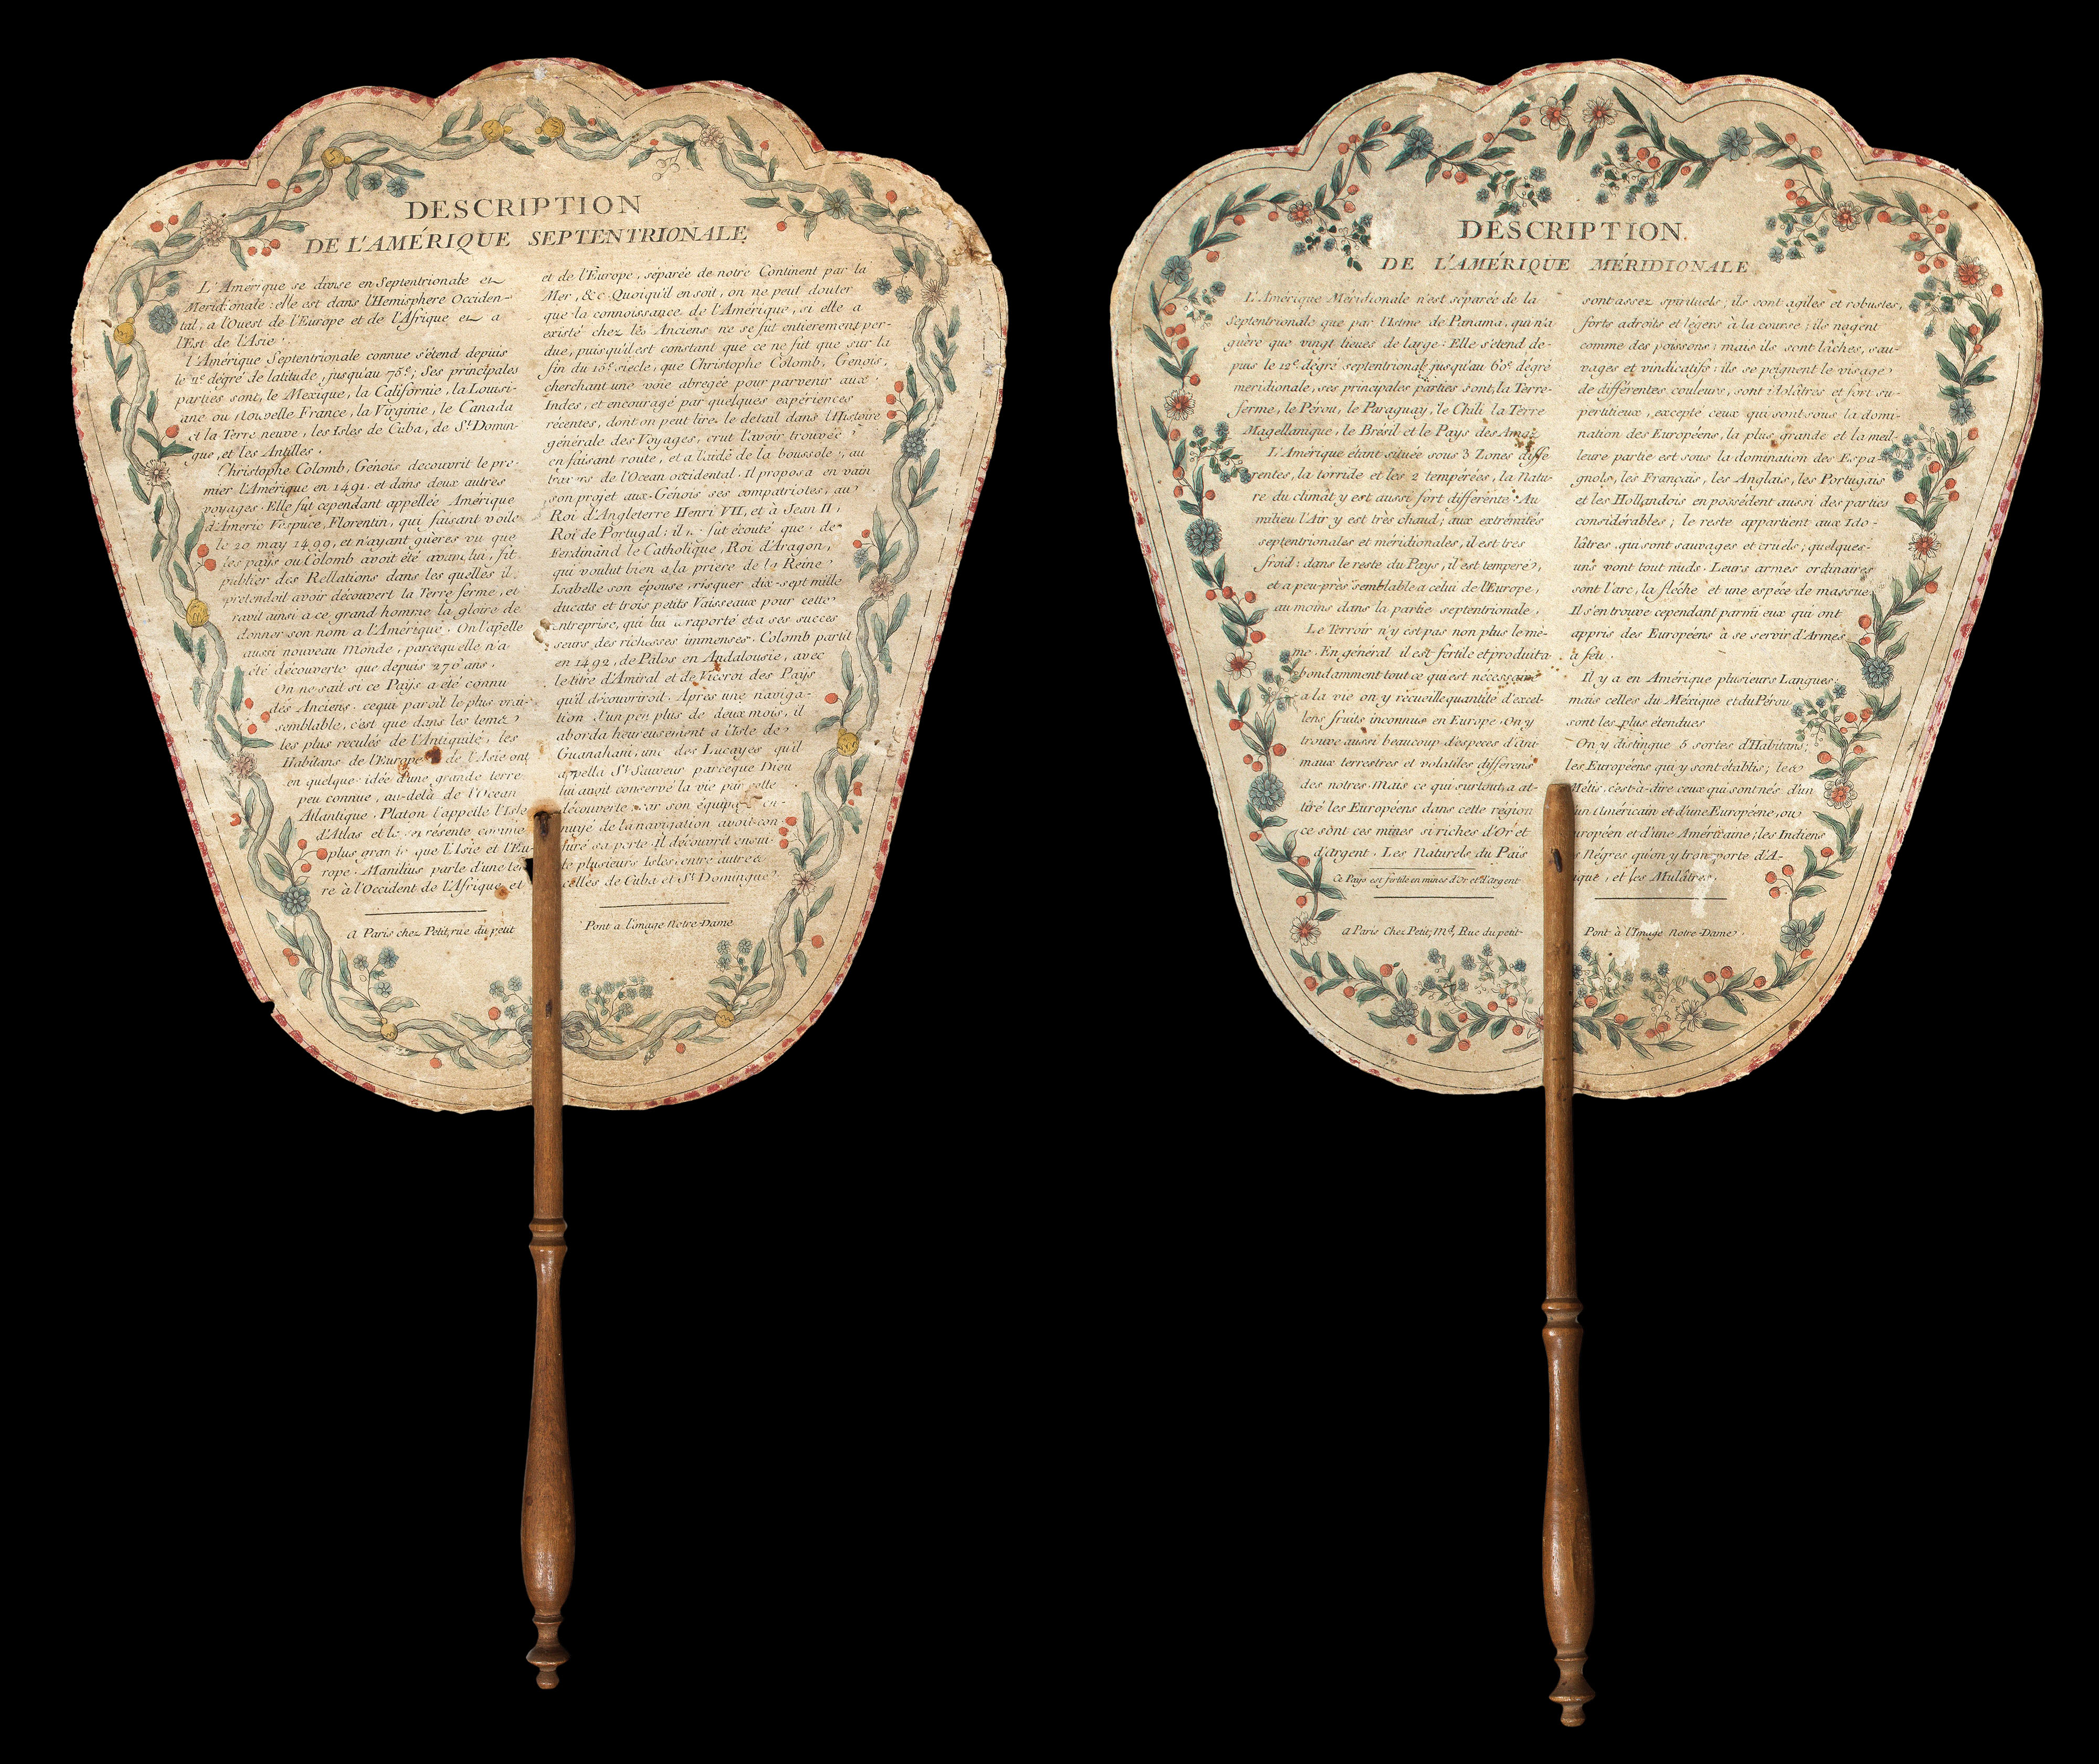 DESCRIPTION
DE L'AMÉRIQUE SEPTENTRIONALE
L'Amérique se divise en Septentrionale et
Meridionale: elle est dans l'Hemisphere Occiden-
tal, a l'Ouest de l'Europe et de l'Afrique et a
l'Est de l'Asie.
l'Amérique Septentrionale connue s'étend depuis
le 11e dégré de latitude, jusqu'au 75e; Ses principales
parties sont, le Mexique, la Californie, la Louisi-
ane ou Nouvelle France, la Virginie, le Canada
et la Terre neuve, les Isles de Cuba, de St Domin-
gue, et les Antilles.
Christophe Colomb, Génois decouvrit le pre-
mier l'Amérique en 1491. et dans deux autres
voyages. Elle fut cependant appellée Amérique
d'Americ Vespuce, Florentin, qui faisant voile
le 20 may 1499, et n'ayant guères vu que
les pays ou Colomb avoit été avant lui, fit
publier des Rellations dans les quelles il
prétendoit avoir découvert la Terre ferme, et
ravit ainsi a ce grand homme la gloire de
donner son nom a l'Amérique. On l'apelle
aussi nouveau Monde, parcequ'elle n'a
été découverte que depuis 270 ans.
On ne sait si ce Païs a été connu
des Anciens. cequi paroît le plus vrai-
semblable, c'est que dans les tems
les plus reculés de l'Antiquité, les
Habitans de l'Europe de l'Asie ont
en quelque idée d'une grande terre
peu connue, au-delà de l'Ocean
Atlantique. Platon l'appelle l'Isle
d'Atlas et le représente comme
plus grande que l'Asie et l'Eu-
rope. Manilius parle d'une ter
re à l'Occident de l'Afrique et
a Paris chez Petit, rue du petit
et de l'Europe, séparée de notre Continent par la
Mer, &c. Quoiqu'il en soit, on ne peut douter
que la connoissance de l'Amérique, si elle a
existé chez les Anciens ne se fut entierement per-
due, puisqu'il est constant que ce ne fut que sur la
fin du 15e siecle, que Christophe Colomb, Genois,
cherchant une voie abregée pour parvenir aux
Indes, et encouragé par quelques expériences
récentes, dont on peut lire le detail dans l'Histoire
générale des Voyages, crut l'avoir trouvée
en faisant route, et a l'aide de la boussole, au
travers de l'Ocean occidental. Il proposa en vain
son projet aux Génois ses compatriotes, au
Roi d'Angleterre Henri VII, et à Jean II,
Roi de Portugal: il ne fut écouté que de
Ferdinand le Catholique, Roi d'Aragon,
qui voulut bien a la priere de la Reine
Isabelle son épouse, risquer dix-sept mille
ducats et trois petits Vaisseaux pour cette
entreprise, qui lui a raporté et a ses succes
seurs des richesses immenses. Colomb partit
en 1492, de Pâlos en Andalousie, avec
le titre d'Amiral et de Viceroi des Pays
qu'il découvriroit. Après une naviga-
tion d'un peu plus de deux mois, il
aborda heureusement a l'Isle de
Guanahani, une des Lucayes qu'il
apella St Sauveur parceque Dieu
lui avoit conservé la vie par cette
découverte car son équipage en-
nuyé de la navigation avoit con-
juré sa perte. Il découvrit ensui-
te plusieurs Isles entre autres
celles de Cuba et St Domingue.
Pont a l'image Notre-Dame
DESCRIPTION.
DE L'AMÉRIQUE MÉRIDIONALE
L'Amérique Méridionale n'est séparée de la
Septentrionale que par l'Istme de Panama, qui n'a
guère que vingt lieues de large. Elle s'étend de-
puis le 12e dégré septentrional jusqu'au 60e dégré
meridionale, ses principales parties sont, la Terre-
ferme, le Pérou, le Paraguay, le Chili la Terre
Magellanique, le Brésil et le Pays des Amaz
L'Amérique étant située sous 3 Zones diffe
rentes, la torride et les 2 tempérées, la Natu-
re du climât y est aussi fort différente. Au
milieu l'Air y est très chaud; aux extrémités
septentrionales et méridionales, il est très
froid: dans le reste du Pays, il est temperé,
et a peu-près semblable a celui de l'Europe,
au moins dans la partie septentrionale.
Le Terroir n'y est pas non plus le mê-
me. En général il est fertile et produit a
bondamment tout ce qui est nécessaire
a la vie on y recueille quantité d'excel-
lens fruits inconnus en Europe. On y
trouve aussi beaucoup d'especes d'ani
maux terrestres et volatiles différens
des notres. Mais ce qui surtout a at-
tiré les Européens dans cette région
ce sont ces mines si riches d'Or et
d'argent. Les Naturels du Païs
Ce Pays est fertile en mines d'Or et d'argent
a Paris Chez Petit, Md, Rue du petit-
sont assez spirituels, ils sont agiles et robustes,
forts adroits et legers à la course; ils nagent
comme des poissons: mais ils sont lâches, sau-
vages et vindicatifs: ils se peignent le visage
de différentes couleurs, sont idolâtres et fort su-
perstitieux, excepté ceux qui sont sous la domi-
nation des Européens, la plus grande et la meil-
leure partie est sous la domination des Espa-
gnols, les Français, les Anglais, les Portugais
et les Hollandois en possédent aussi des parties
considérables; le reste appartient aux Ido-
lâtres, qui sont sauvages et cruels; quelques-
uns vont tout nuds. Leurs armes ordinaires
sont l'arc, la fléche et une espéce de massue
Il s'en trouve cependant parmi eux qui ont
appris des Européens à se servir d'Armes
a feu.
Il y a en Amérique plusieurs Langues;
mais celles du Méxique et du Pérou
sont les plus étendues
On y distingue 5 sortes d'Habitans;
les Européens qui y sont établis; les
Métis, c'est-à-dire ceux qui sont nés d'un
un Américain et d'une Européene, ou
uropéen et d'une Américaine; les Indiens
s Négres qu'on y transporte d'A-
ique, et les Mulâtres.
Pont à l'Image Notre-Dame.